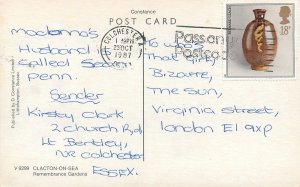 Constance
POST CARD
COLCHESTER
1 15PM
23 OCT
1987
Pass on
Postcode
18p
Madonna's
Husband is
called
Penn.
Sender
Kirsty Clark
2 Church Rd
Lt Bentley,
NR Colchester
ESSEX.
To
Bizarre,
The Sun,
Virginia Street,
London E1 9XP
Published by D. Constance Limited
Littlehampton, Sussex
V 9299 CLACTON-ON-SEA
Remembrance Gardens